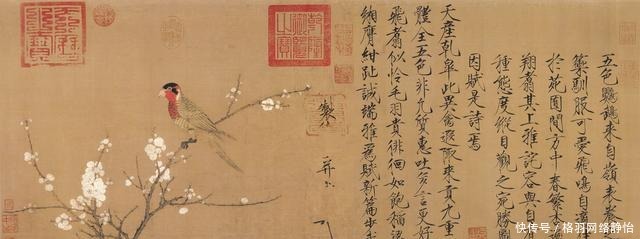 五色鸚鵡來自嶺表養
籞馴服可愛飛鳴自適
於苑囿間方中春繁
翔翥其上雅詫容與自
種態度縱目觀之宛勝
因賦是詩焉
天產乾皋此異禽遐陬來貢九重
體全五色非凡質惠吐多言更好
飛翥似怜毛羽貴徘徊如飽稻
緗膺紺趾誠端雅為賦新篇步
製
并
快传号/格羽网络静怡